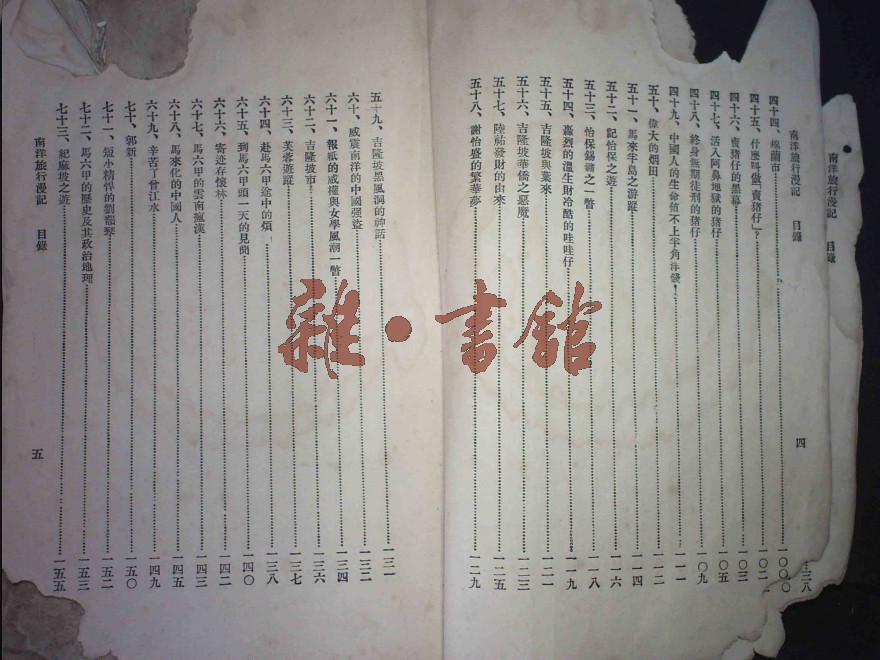 南洋旅行漫記 目錄
三八
南洋旅行漫記 目錄 四
四十四、棉蘭市 一〇〇
四十五、什麼叫做「賣豬仔」？ 一〇二
四十六、賣豬仔的黑幕 一〇三
四十七、活人阿鼻地獄的豬仔 一〇五
四十八、終身無期徒刑的豬仔 一〇九
四十九、中國人的生命值不上半角洋錢！ 一一一
五十、偉大的烟田 一一二
五十一、馬來半島之游蹤 一一四
五十二、記怡保之遊 一一六
五十三、怡保錫礦之一瞥 一一八
五十四、轟烈的溫生財冷酷的哇哇仔 一一九
五十五、吉隆坡與葉來 一二一
五十六、吉隆坡華僑之惡魔 一二三
五十七、陸祐發財的由來 一二五
五十八、謝怡盛的繁華夢 一二九
五十九、吉隆坡黑風洞的神話 一三一
六十、威震南洋的中國强盜 一三二
六十一、報紙的威權與女學風潮一瞥 一三四
六十二、吉隆坡市 一三六
六十三、芙蓉遊蹤 一三七
六十四、赴馬六甲途中的煩 一三八
六十五、到馬六甲頭一天的見聞 一四〇
六十六、寄迹存懷林 一四二
六十七、馬六甲的雲南瘋漢 一四三
六十八、馬來化的中國人 一四五
六十九、辛苦了曾江水 一四九
七十、郭新 一五〇
七十一、短小精悍的劉韻琴 一五二
七十二、馬六甲的歷史及其政治地理 一五三
七十三、紀麻坡之遊 一五五
南洋旅行漫記 目錄 五
雜·書舘